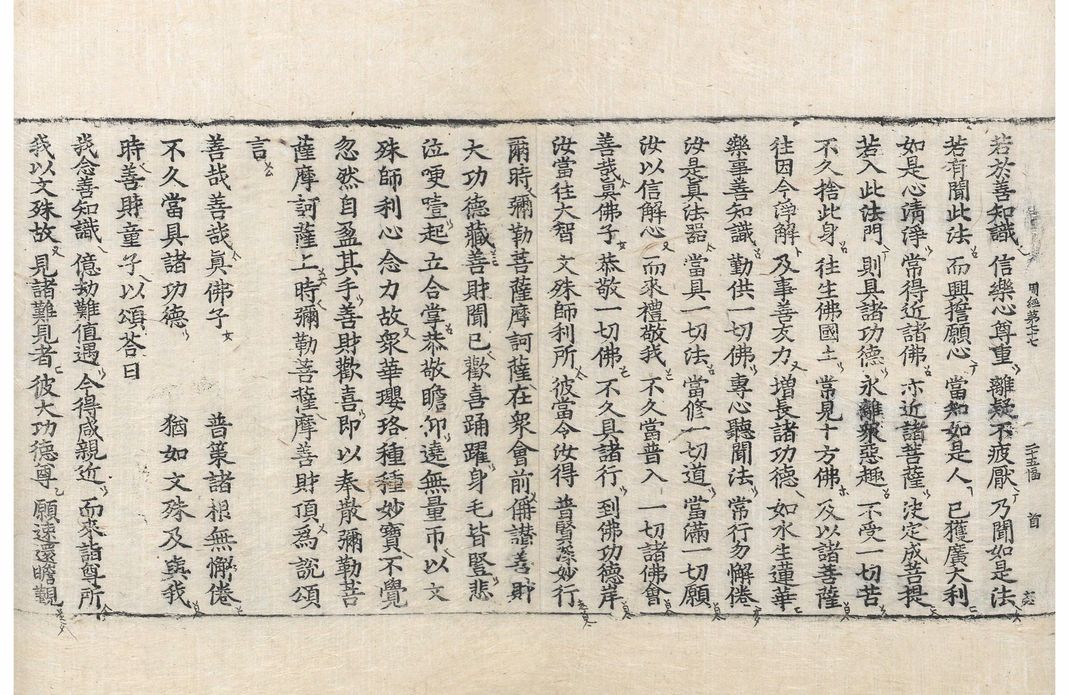 周經第七十七 二十五幅 首
若於善知識 信樂心尊重 離疑不疲厭 乃聞如是法
若有聞此法 而興誓願心 當知如是人 已獲廣大利
如是心清淨 常得近諸佛 亦近諸菩薩 決定成菩提
若入此法門 則具諸功德 永離衆惡趣 不受一切苦
不久捨此身 往生佛國土 常見十方佛 及以諸菩薩
往因今淨解 及事善友力 增長諸功德 如水生蓮華
樂事善知識 勤供一切佛 專心聽聞法 常行勿懈倦
汝是真法器 當具一切法 當修一切道 當滿一切願
汝以信解心 而來禮敬我 不久當普入 一切諸佛會
善哉眞佛子 恭敬一切佛 不久具諸行 到佛功德岸
汝當往大智 文殊師利所 彼當令汝得 普賢深妙行
爾時彌勒菩薩摩訶薩在衆會前稱讃善財
大功德藏善財聞已歡喜踊躍身毛皆竪悲
泣哽噎起立合掌恭敬瞻仰遶無量帀以文
殊師利心念力故衆華瓔珞種種妙寶不覺
忽然自盈其手善財歡喜即以奉散彌勒菩
薩摩訶薩上時彌勒菩薩摩善財頂爲說頌
言
善哉善哉眞佛子 普策諸根無懈倦
不久當具諸功德 猶如文殊及與我
時善財童子以頌荅曰
我念善知識 億劫難值遇 今得咸親近 而來詣尊所
我以文殊故 見諸難見者 彼大功德尊 願速還瞻覲